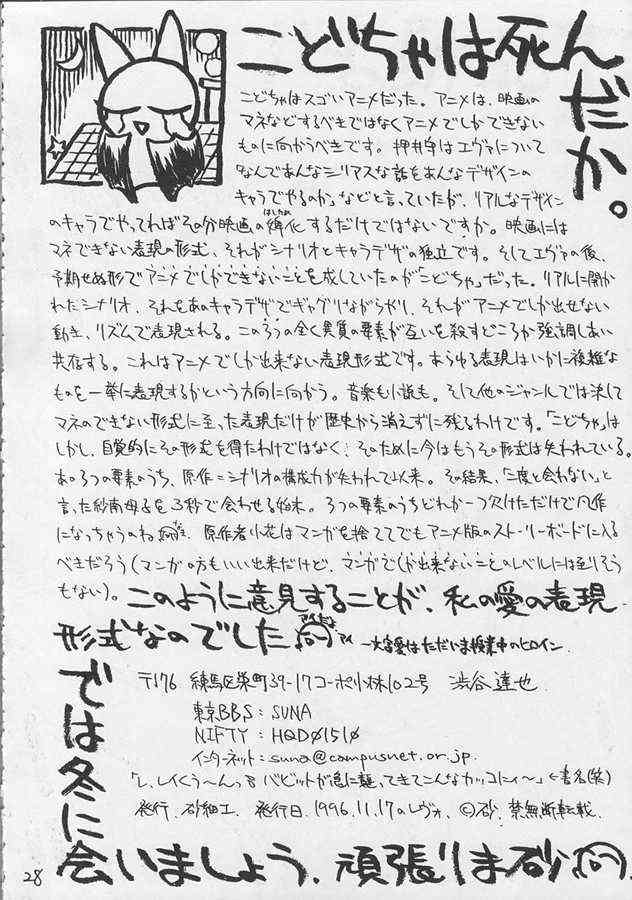 こどちゃは死んだか。
こどちゃはスゴいアニメだった。アニメは、映画の
マネなどするべきではなくアニメでしかできない
ものに向かうべきです。押井守はエヴァについて
「なんであんなシリアスな話をあんなデザインの
キャラでやるのか」などと言っていたが、リアルなデザイン
のキャラでやってればその分映画の化するだけではないですか。映画には
マネできない表現の形式、それがシナリオとキャラデザの独立です。そしてエヴァの後、
予期せぬ形でアニメでしかできないことを成していたのが「こどちゃ」だった。リアルに開か
れたシナリオ、それをあのキャラデザでギャグりながらやり、それがアニメでしか出せない
動き、リズムで表現される。この3つの全く異質の要素が互いを殺すどころか強調しあい
共存する。これはアニメでしか出来ない表現形式です。あらゆる表現はいかに複雑な
ものを一挙に表現するかという方向に向かう。音楽も小説も。そして他のジャンルでは決して
マネのできない形式に至った表現だけが歴史から消えずに残るわけです。「こどちゃ」は
しかし、自覚的にその形式を得たわけではなく、そのために今はもうその形式は失われている。
あの3つの要素のうち、原作＝シナリオの構成力が失われて以来。その結果、「二度と会わない」と
言った紗南母子を3秒で会わせる始末。3つの要素のうちどれか一つ欠けただけで凡作
になっちゃうのね 原作者小花はマンガを捨ててでもアニメ版のストーリーボードに入る
べきだろう(マンガの方もいい出来だけど、マンガでしか出来ないことのレベルには至りそう
もない)。このように意見することが、私の愛の表現
形式なのでした アイ ―大宮愛はただいま授業中のヒロイン.
〒176 練馬区栄町39-17コーポ小林102号 渋谷達也
東京BBS：SUNA
NIFTY：HQD01510
インターネット：suna@campusnet.or.jp.
「し、レイくう〜んっ バビットが急に襲ってきてこんなカッコにィ〜」←書名(笑)
発行. 砂細工. 発行日. 1996.11.17のレヴォ. ©砂. 禁無断転載.
では冬に
会いましょう. 頑張りま砂
28